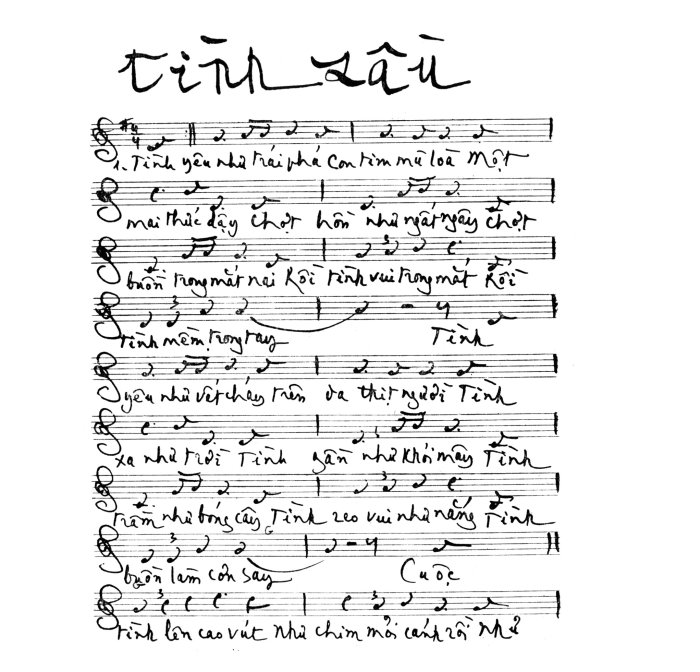 Tình sầu
4
4
1. Tình yêu như trái phá con tim mù loà Một
mai thức dậy chợt hồn như ngất ngây chợt
buồn trong mắt nai Rồi tình vui trong mắt Rồi
3
tình mềm trong tay Tình
3
yêu như vết cháy trên da thịt người Tình
xa như trời Tình gần như khói mây Tình
3
trầm như bóng cây Tình reo vui như nắng Tình
3
buồn làm cơn say Cuộc
3
tình lên cao vút như chim mỏi cánh rồi như
3 3